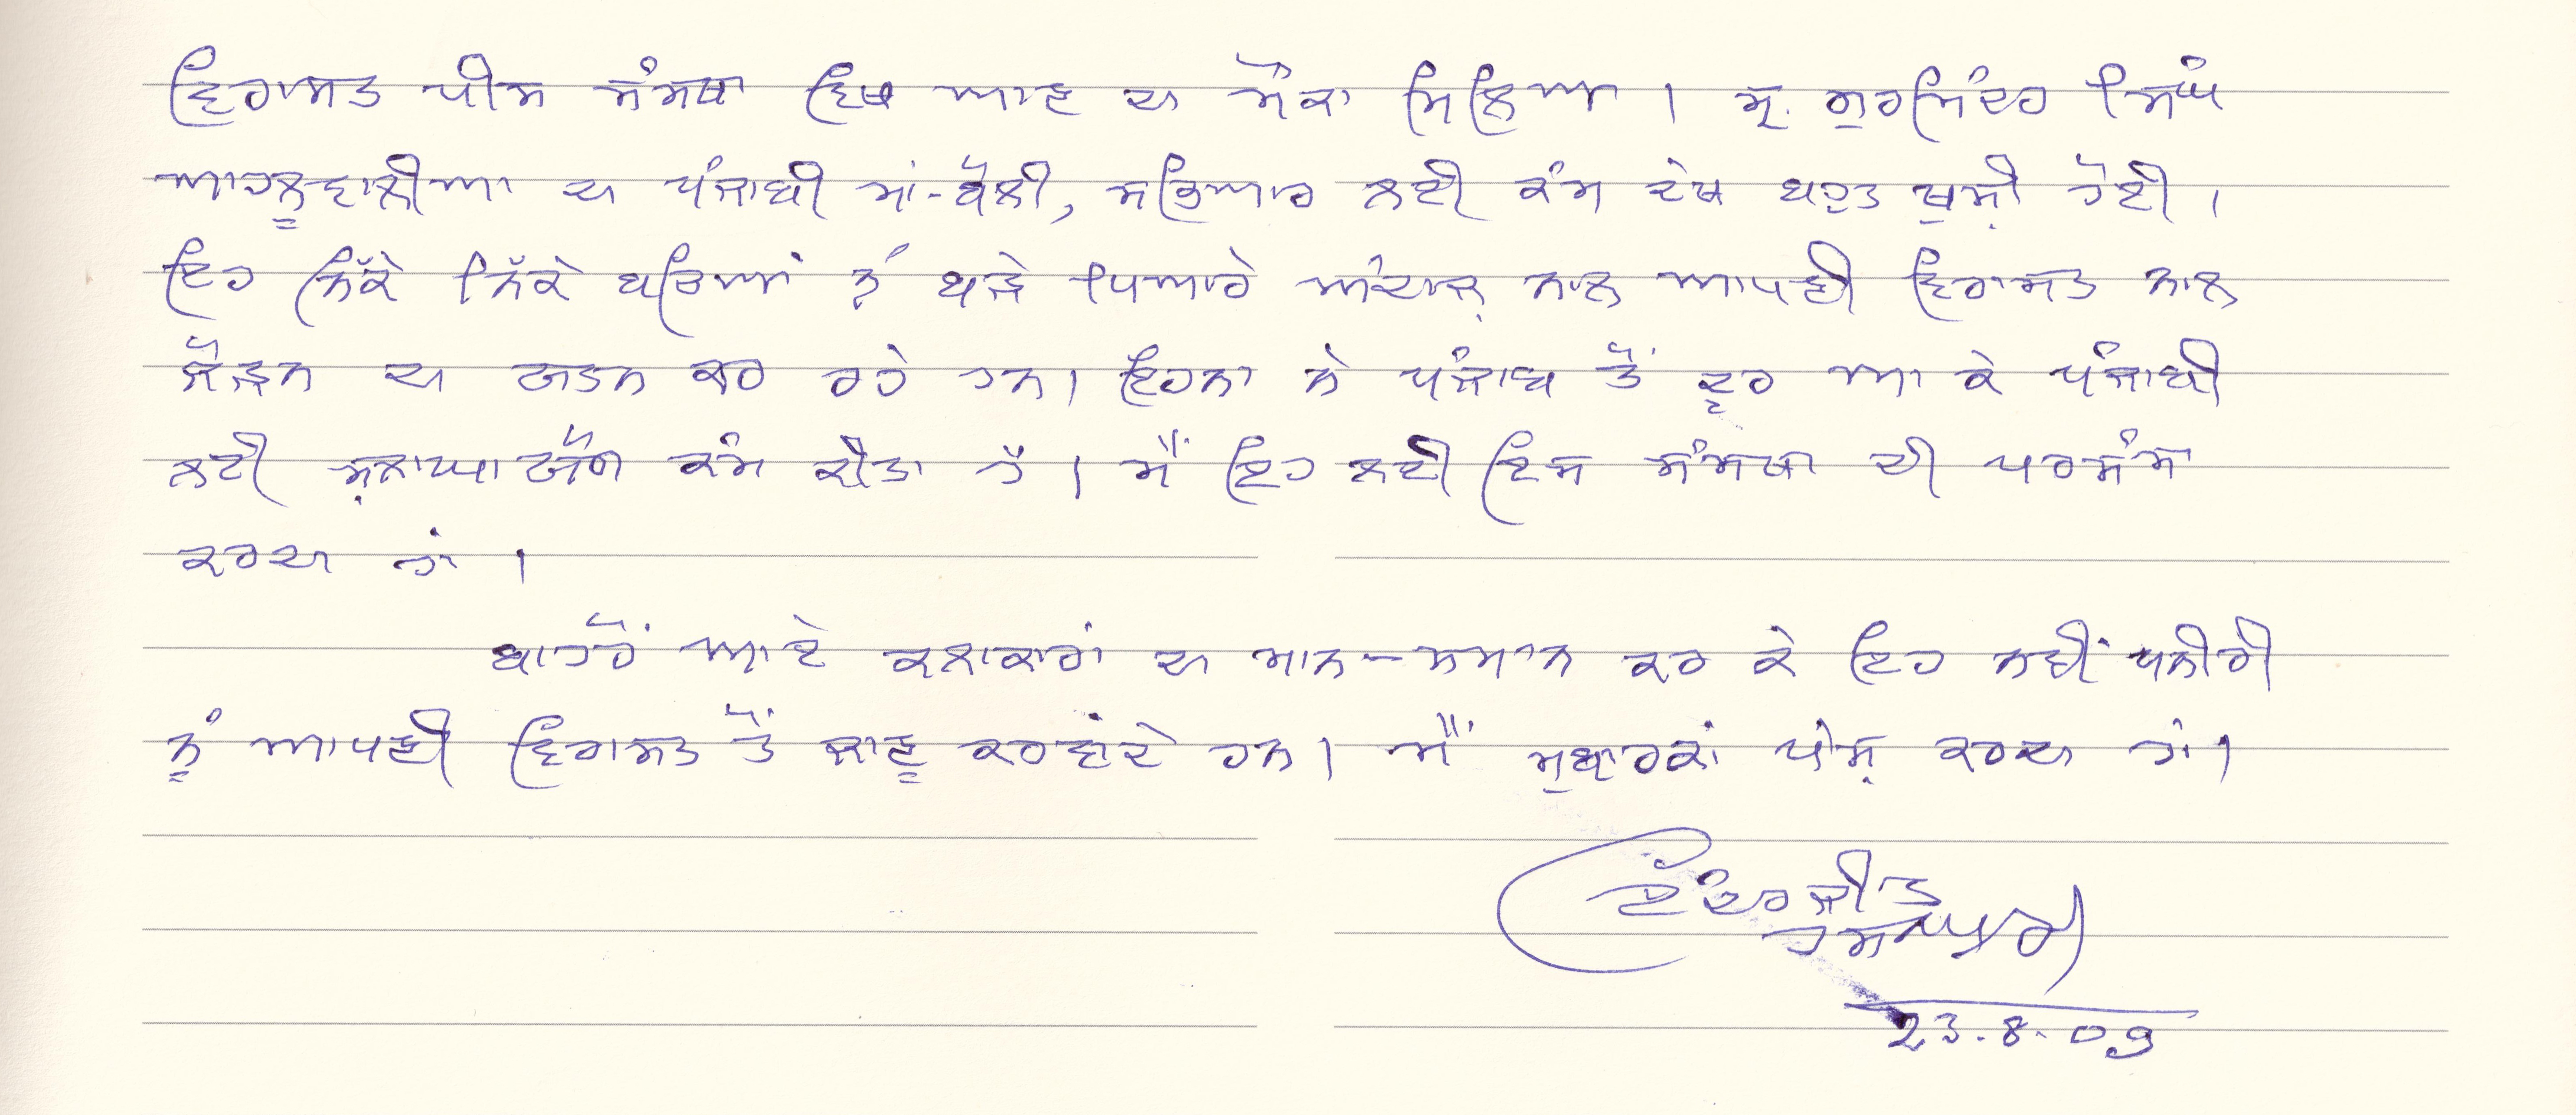 ਵਿਰਾਸਤ ਪੀਸ ਸੰਸਥਾ ਵਿਖੇ ਆਣ ਦਾ ਮੌਕਾ ਮਿਲਿਆ । ਸ੍ਰ. ਗੁਰਮਿੰਦਰ ਸਿੰਘ
ਆਹਲੂਵਾਲੀਆ ਦਾ ਪੰਜਾਬੀ ਮਾਂ-ਬੋਲੀ, ਸਭਿਆਰ ਲਈ ਕੰਮ ਦੇਖ ਬਹੁਤ ਖੁਸ਼ੀ ਹੋਈ ।
ਇਹ ਨਿੱਕੇ ਨਿੱਕੇ ਬਚਿਆਂ ਨੂੰ ਬੜੇ ਪਿਆਰੇ ਅੰਦਾਜ਼ ਨਾਲ ਆਪਣੀ ਵਿਰਾਸਤ ਨਾਲ
ਜੋੜਨ ਦਾ ਯਤਨ ਕਰ ਰਹੇ ਹਨ। ਇਹਨਾ ਨੇ ਪੰਜਾਬ ਤੋਂ ਦੂਰ ਆ ਕੇ ਪੰਜਾਬੀ
ਲਈ ਸ਼ਲਾਘਾ ਯੋਗ ਕੰਮ ਕੀਤਾ ਹੈ । ਮੈਂ ਇਹ ਲਈ ਇਸ ਸੰਸਥਾ ਦੀ ਪਰਸੰਸਾ
ਕਰਦਾ ਹਾਂ ।
ਬਾਹਰੋਂ ਆਏ ਕਲਾਕਾਰਾਂ ਦਾ ਮਾਨ-ਸਮਾਨ ਕਰ ਕੇ ਇਹ ਨਵੀਂ ਪਨੀਰੀ
ਨੂੰ ਆਪਣੀ ਵਿਰਾਸਤ ਤੋਂ ਜਾਣੂ ਕਰਵਾਂਦੇ ਹਨ। ਮੈਂ ਮੁਬਾਰਕਾਂ ਪੇਸ਼ ਕਰਦਾ ਹਾਂ।
ਇੰਦਰਜੀਤ
ਹਸਨਪੁਰੀ
23.8.09